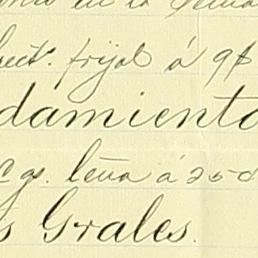 en la
hect. frijol á 9$
damiento
Cgs. leña á 25 c
s Grales.